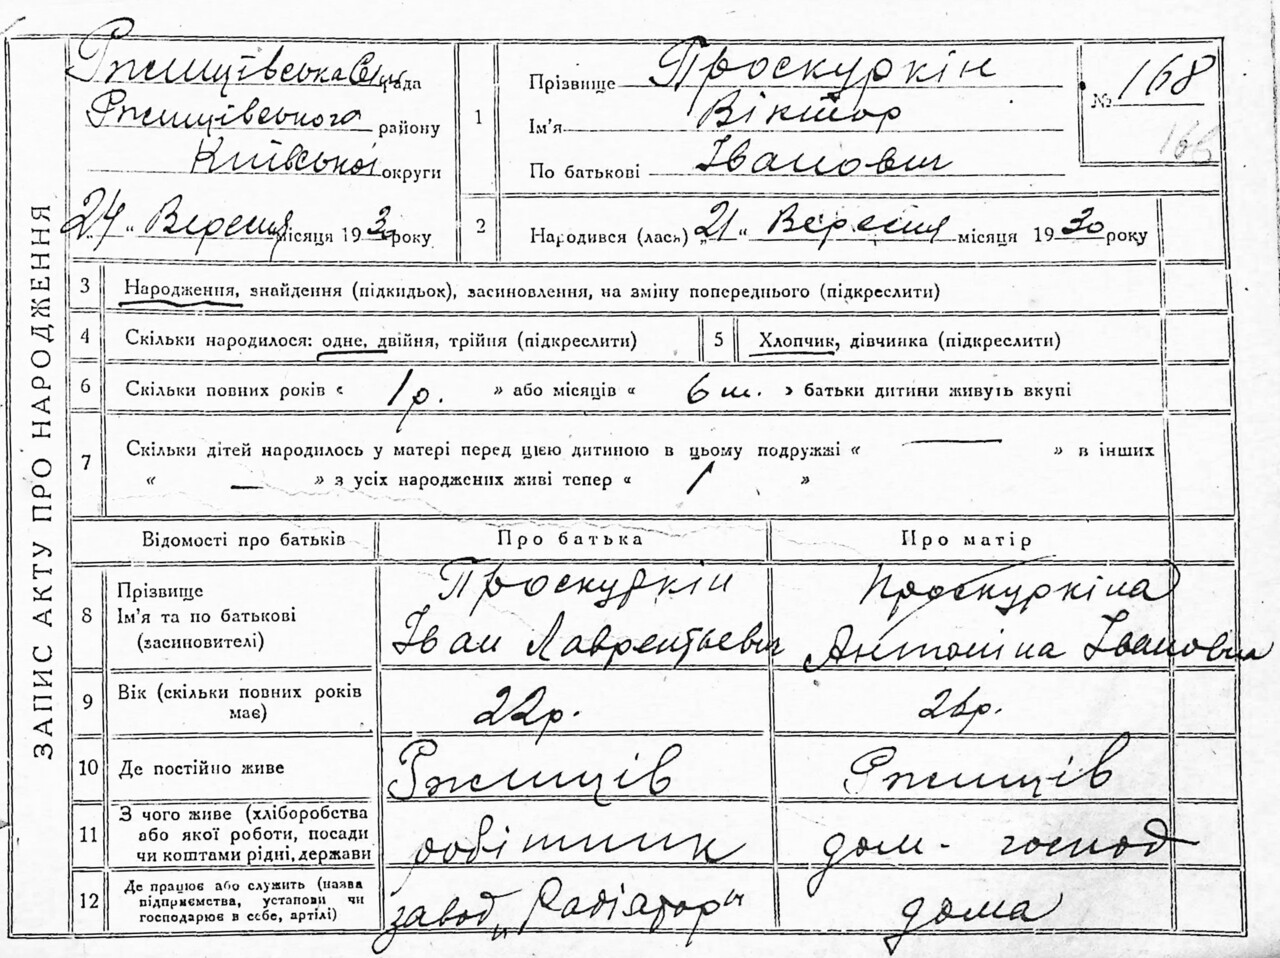 ЗАПИС АКТУ ПРО НАРОДЖЕННЯ
Ржищівська Сел рада
Ржищівського району
Київської округи
„24“ Вересня місяця 1930 року
1
Прізвище Проскуркін
Ім'я Віктор
По батькові Іванович
№ 168
166
2
Народився (лась) „21“ Вересня місяця 1930 року
3 Народження, знайдення (підкидьок), засиновлення, на зміну попереднього (підкреслити)
4 Скільки народилося: одне, двійня, трійня (підкреслити)
5 Хлопчик, дівчинка (підкреслити)
6 Скільки повних років « 1 р. » або місяців « 6 м. » батьки дитини живуть вкупі
7 Скільки дітей народилось у матері перед цією дитиною в цьому подружжі « — » в інших
« — » з усіх народжених живі тепер « 1 »
Відомості про батьків Про батька Про матір
8 Прізвище
Ім'я та по батькові
(засиновителі)
Проскуркін
Іван Лаврентьевич
Проскуркіна
Антоніна Івановна
9 Вік (скільки повних років
має)
22р. 26р.
10 Де постійно живе Ржищів Ржищів
11 З чого живе (хліборобства
або якої роботи, посади
чи коштами рідні, держави
робітник дом- господ
12 Де працює або служить (назва
підприємства, установи чи
господарює в себе, артілі)
завод „Радіатор" дома